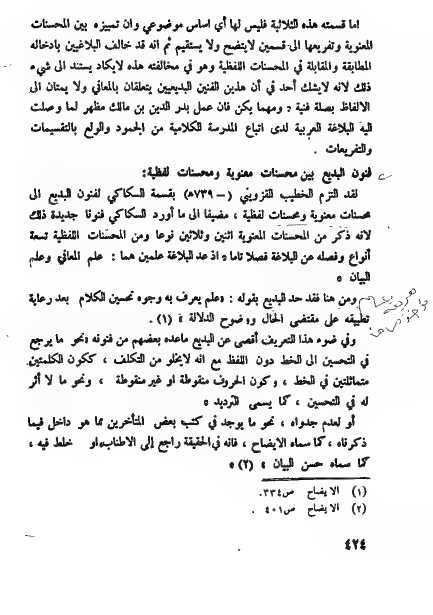 اما قسمته هذه الثلاثية فليس لها أي اساس موضوعي وان تمييزه بين المحسنات
المعنوية وتفريعها الى قسمين لايتضح ولا يستقيم ثم انه قد خالف البلاغيين بادخاله
المطابقة والمقابلة في المحسنات اللفظية وهو في مخالفته هذه لايكاد يستند الى شيء
ذلك لانه لايشك أحد في أن هذين الفنين البديعيين يتعلقان بالمعاني ولا يمتان الى
الالفاظ بصلة فنية ، ومهما يكن فان عمل بدر الدين بن مالك مظهر لما وصلت
اليه البلاغة العربية لدى اتباع المدرسة الكلامية من الجمود والولع بالتقسيمات
والتفريعات .
فنون البديع بين محسنات معنوية ومحسنات لفظية:
لقد التزم الخطيب القزويني ( – ٧٣٩هـ) بقسمة السكاكي لفنون البديع الى
محسنات معنوية ومحسنات لفظية ، مضيفا الى ما أورد السكاكي فنونا جديدة ذلك
لانه ذكر من المحسنات المعنوية اثنين وثلاثين نوعا ومن المحسنات اللفظية تسعة
أنواع وفصله عن البلاغة فصلا تاما، اذ عد البلاغة علمين هما : علم المعاني وعلم
البيان .
ومن هنا فقد حد البديع بقوله : «علم يعرف به وجوه تحسين الكلام بعد رعاية
تطبيقه على مقتضى الحال ووضوح الدلالة » (١) .
وفي ضوء هذا التعريف أقصى عن البديع ماعده بعضهم من فنونه «نحو ما يرجع
في التحسين الى الخط دون اللفظ مع انه لايخلو من التكلف ، ككون الكلمتين
متماثلتين في الخط ، وكون الحروف منقوطة او غير منقوطة ، ونحو ما لا أثر
له في التحسين ، كما يسمى الترديد ،
أو لعدم جدواه ، نحو ما يوجد في كتب بعض المتأخرين مما هو داخل فيما
ذكرناه ، كما سماه الايضاح ، فانه في الحقيقة راجع إلى الاطناب، او خلط فيه ،
كما سماه حسن البيان » (٢) .
(١) الايضاح ص٣٣٤.
(٢) الايضاح ص٤٠١ .
٤٢٤